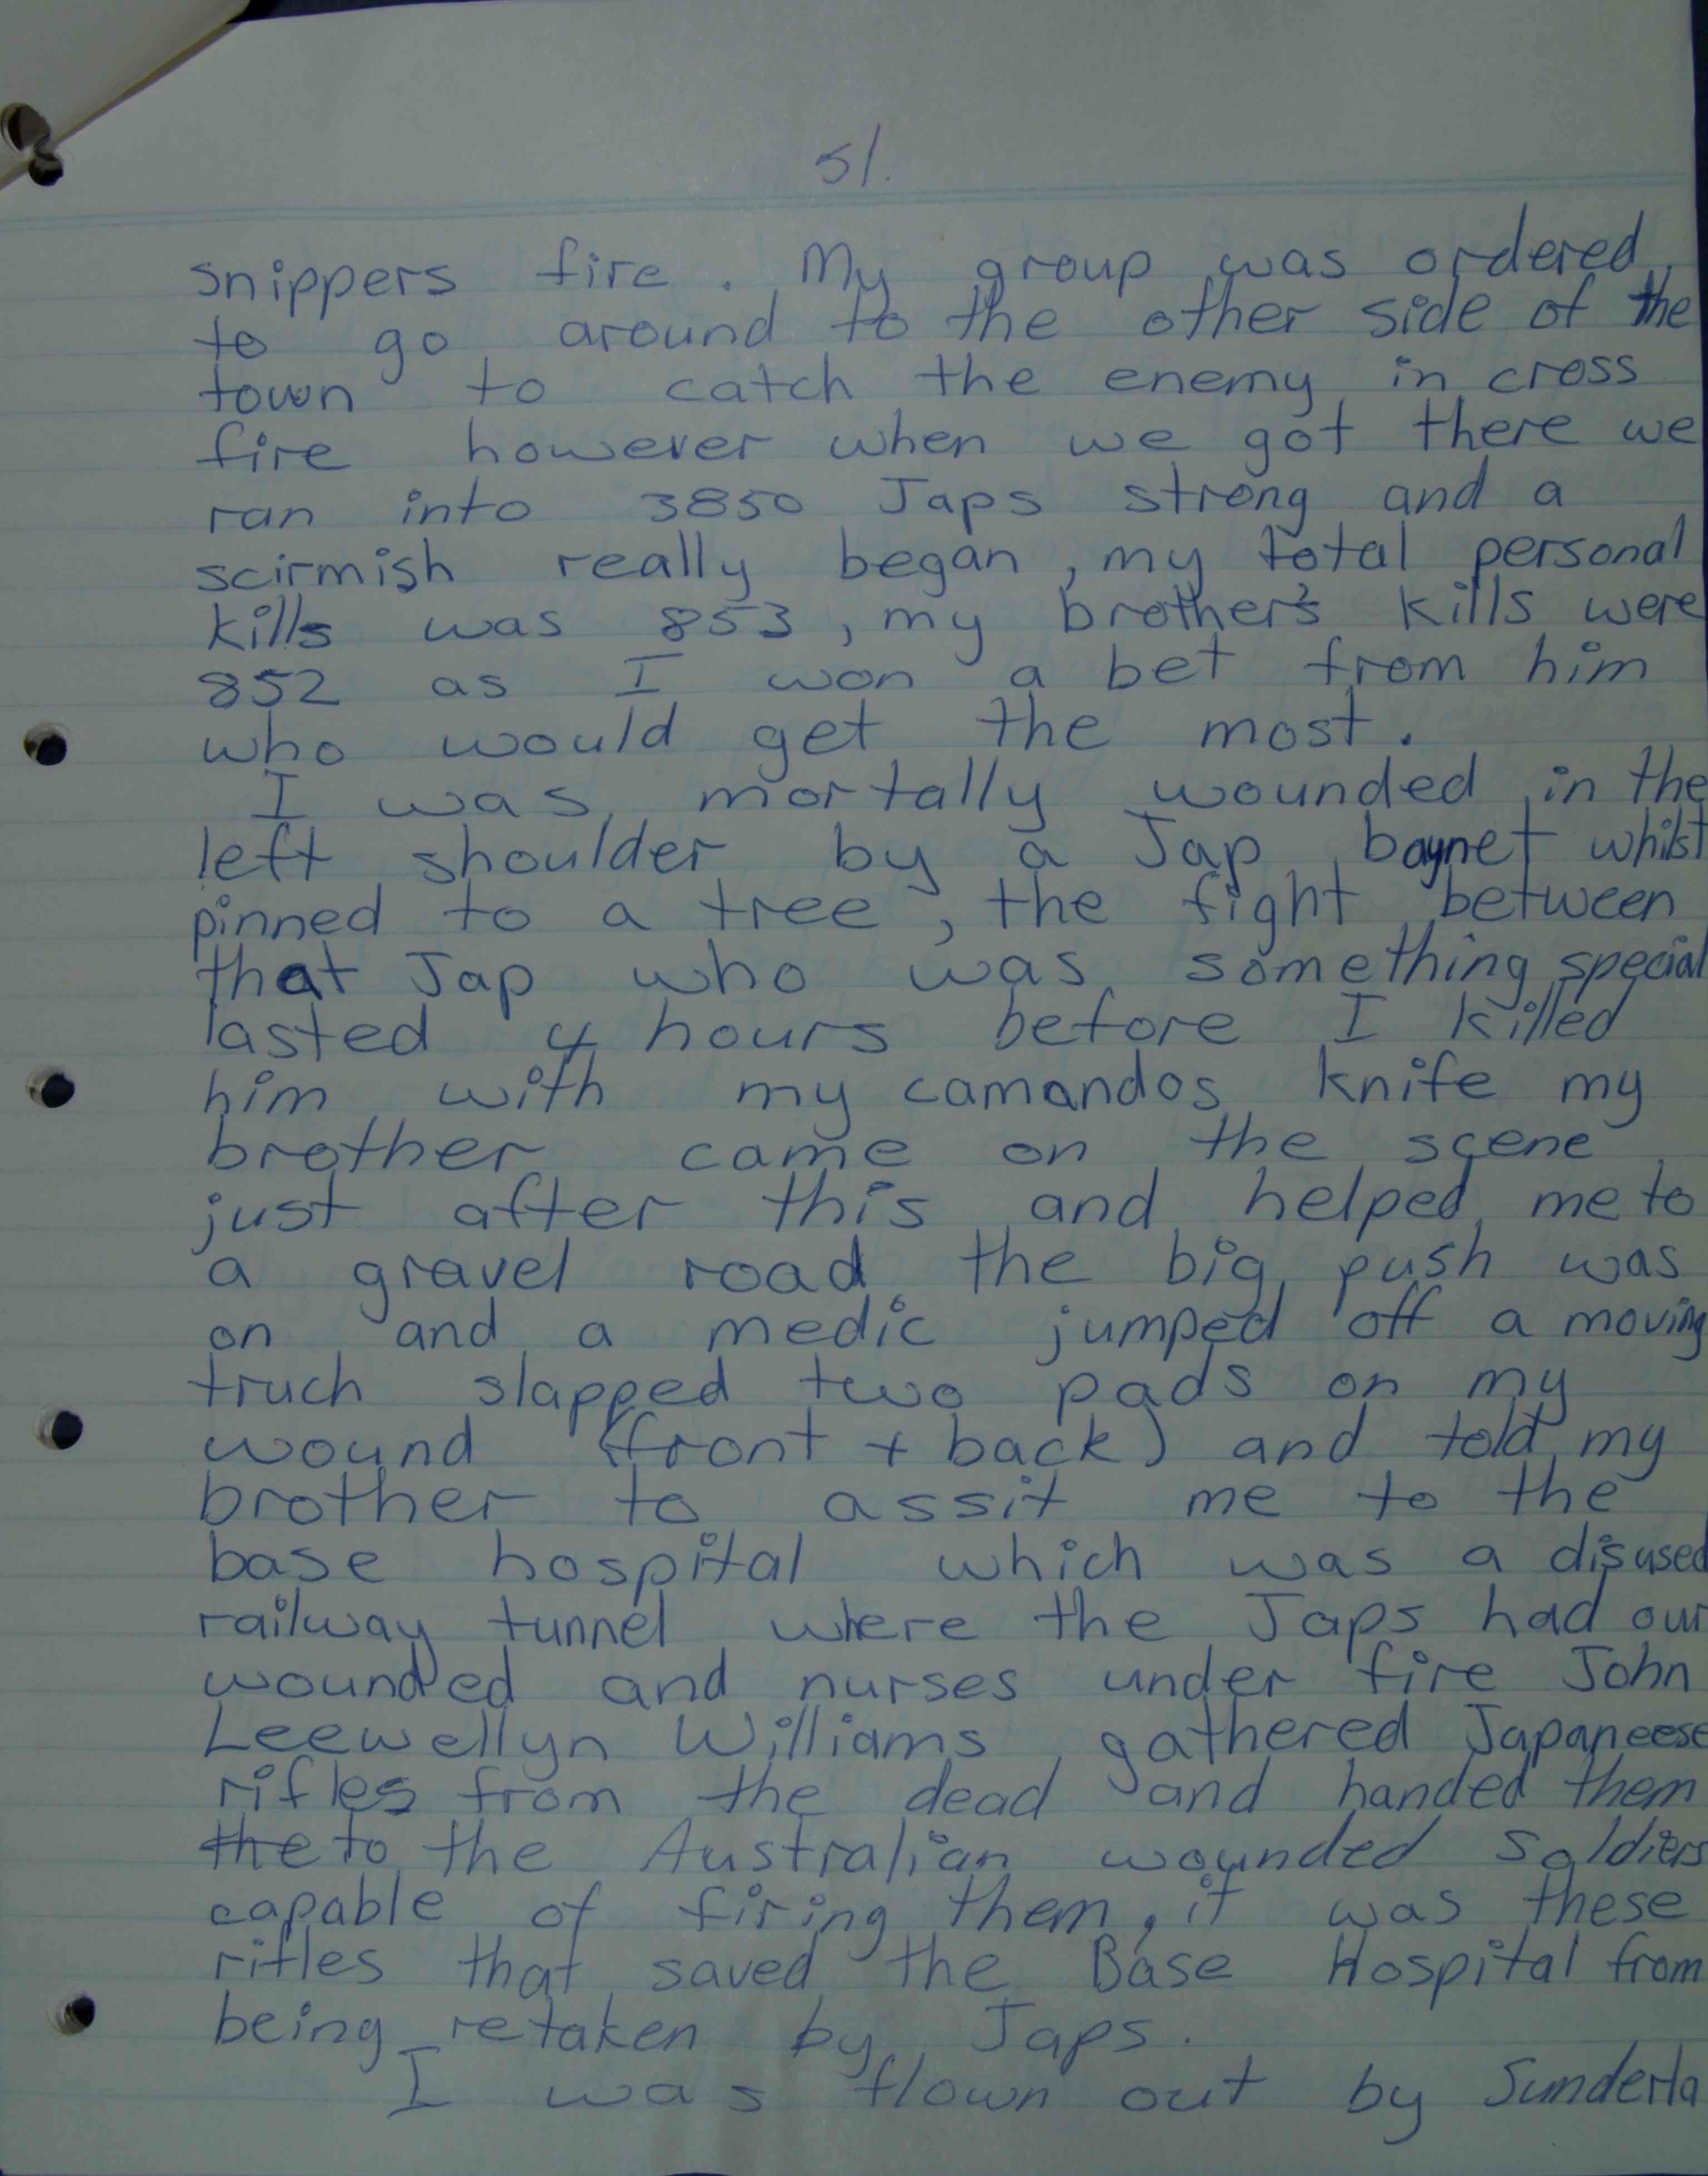 5/.
snippers fire. My group was ordered
to go around to the other side of the
town to catch the enemy in cross
fire however when we got there we
ran into 3850 Japs strong and a
scirmish really began, my total personal
kills was 853, my brother's kills were
852 as I won a bet from him
who would get the most.
I was mortally wounded in the
left shoulder by a Jap baynet whilst
pinned to a tree, the fight between
that Jap who was something special
lasted 4 hours before I killed
him with my camandos knife my
brother came on the scene
just after this and helped me to
a gravel road the big push was
on and a medic jumped off a moving
truch slapped two pads on my
wound (front + back) and told my
brother to assit me to the
base hospital which was a disused
railway tunnel where the Japs had our
wounded and nurses under fire John
Leewellyn Williams gathered Japaneese
rifles from the dead and handed them
the to the Australian wounded Soldiers
capable of firing them, it was these
rifles that saved the Base Hospital from
being retaken by Japs.
I was flown out by Sunderla